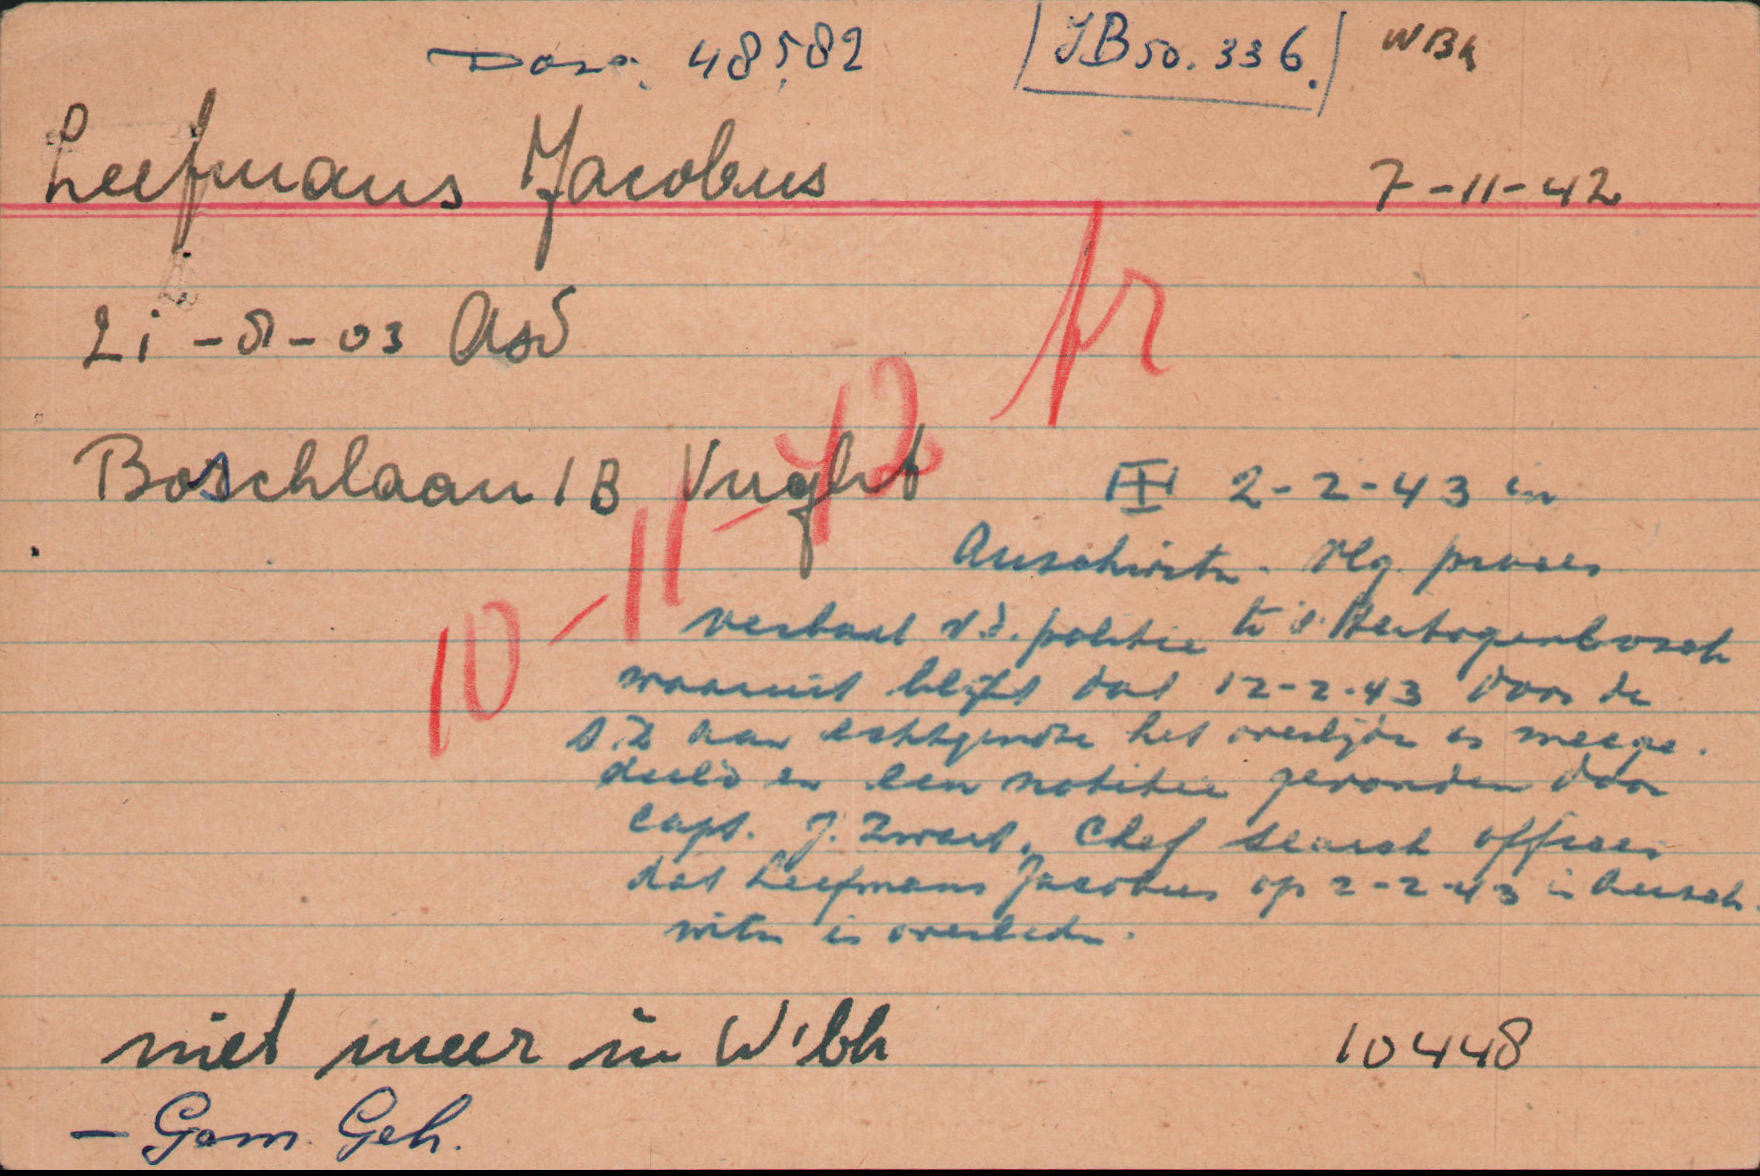 Doss. 48582 JB 50.336. WBK
Leefmans Jacobus 7-11-42
21-8-03 Asd
fr
Boschlaan 1B Vught
10-11-42
III 2-2-43 in
Auschwitz. Vlg. proces
verbaal v.d. politie te 's Hertogenbosch
waaruit blijkt dat 12-2-43 door de
S.D. aan echtgenote het overlijden is meege-
deeld en een notitie gevonden door
Capt. J. Zwart, Chef Search officer
dat Leefmans Jacobus op 2-2-43 in Ausch-
witz is overleden.
niet meer in W'bk 10448
- Gem. Geh.